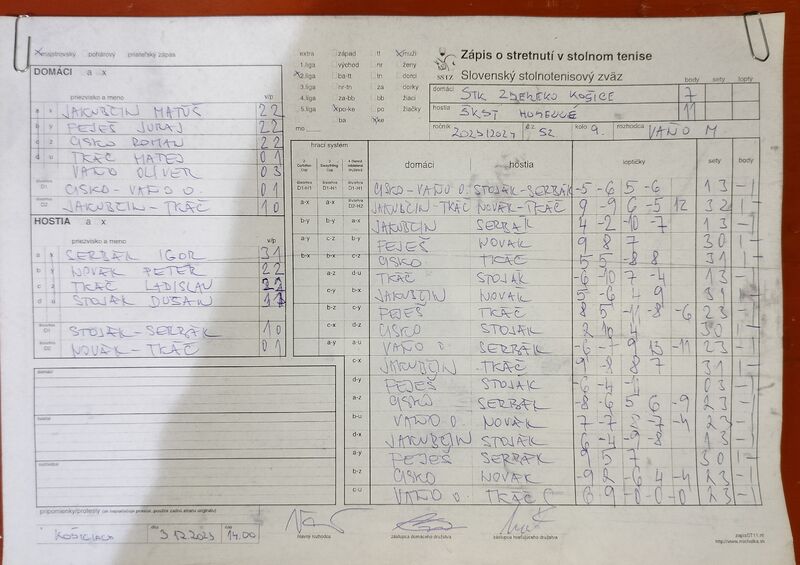 majstrovský pohárový priateľský zápas
DOMÁCI a x
priezvisko a meno v/p
a x JAKUBČIN MATÚŠ 2 2
b y FEJEŠ JURAJ 2 2
c z CISKO ROMAN 2 2
d u TKÁČ MATEJ 0 1
VAŇO OLIVER 0 3
D1 CISKO - VAŇO O. 0 1
D2 JAKUBČIN - TKÁČ 1 0
HOSTIA a x
priezvisko a meno v/p
a x SERBÁK IGOR 3 1
b y NOVÁK PETER 2 2
c z TKÁČ LADISLAV
d u STOJÁK DUŠAN
D1 STOJÁK - SERBÁK 1 0
D2 NOVÁK - TKÁČ 0 1
domáci
hostia
rozhodca
extra západ tt muži
1.liga východ nr ženy
2.liga ba-tt tn dorci
3.liga nr-tn za dorky
4.liga za-bb bb žiaci
5.liga po-ke po žiačky
mo ba ke
Zápis o stretnutí v stolnom tenise
SSTZ Slovenský stolnotenisový zväz
body sety lopty
domáci STK ZDENEKO KOŠICE 7
hostia ŠKST HUMENNÉ 11
ročník 2023/2024 č z 52 kolo 9. rozhodca VAŇO M.
hrací systém domáci hostia loptičky sety body
CISKO - VAŇO O. STOJÁK - SERBÁK -5 -6 5 -6 1 3 - 1
JAKUBČIN - TKÁČ NOVÁK - TKÁČ 9 -9 6 -5 12 3 2 1 -
JAKUBČIN SERBÁK 4 -2 -10 -7 1 3 - 1
FEJEŠ NOVÁK 9 8 7 3 0 1 -
CISKO TKÁČ 5 5 -8 8 3 1 1 -
TKÁČ STOJÁK -6 -10 7 -4 1 3 - 1
JAKUBČIN NOVÁK 5 -6 4 9 3 1 1 -
FEJEŠ TKÁČ 8 5 -11 -8 -6 2 3 - 1
CISKO STOJÁK 2 10 4 3 0 1 -
VAŇO O. SERBÁK -6 9 13 -11 2 3 - 1
JAKUBČIN TKÁČ 9 -8 8 7 3 1 1 -
FEJEŠ STOJÁK -6 -4 0 3 - 1
CISKO SERBÁK -8 -6 5 6 -9 2 3 - 1
VAŇO O. NOVÁK 7 -7 -7 -4 2 3 - 1
JAKUBČIN STOJÁK -6 -9 -8 1 3 - 1
FEJEŠ SERBÁK 9 5 7 3 0 1 -
CISKO NOVÁK -9 2 -6 4 -4 2 3 - 1
VAŇO O. TKÁČ 6 9 -0 -0 -0 2 3 - 1
pripomienky/protesty (ak nepostačuje priestor, použite zadnú stranu originálu)
KOŠICIACH dňa 3.12.2023 čas 14.00
hlavný rozhodca zástupca domáceho družstva zástupca hosťujúceho družstva
zapisST11.rtf
http://www.michalka.sk